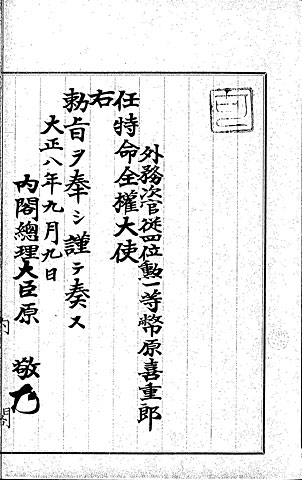 外務次官從四位勳一等幣原喜重郎
任特命全權大使
右
勅旨ヲ奉シ謹テ奏ス
大正八年九月九日
內閣總理大臣原 敬
內閣